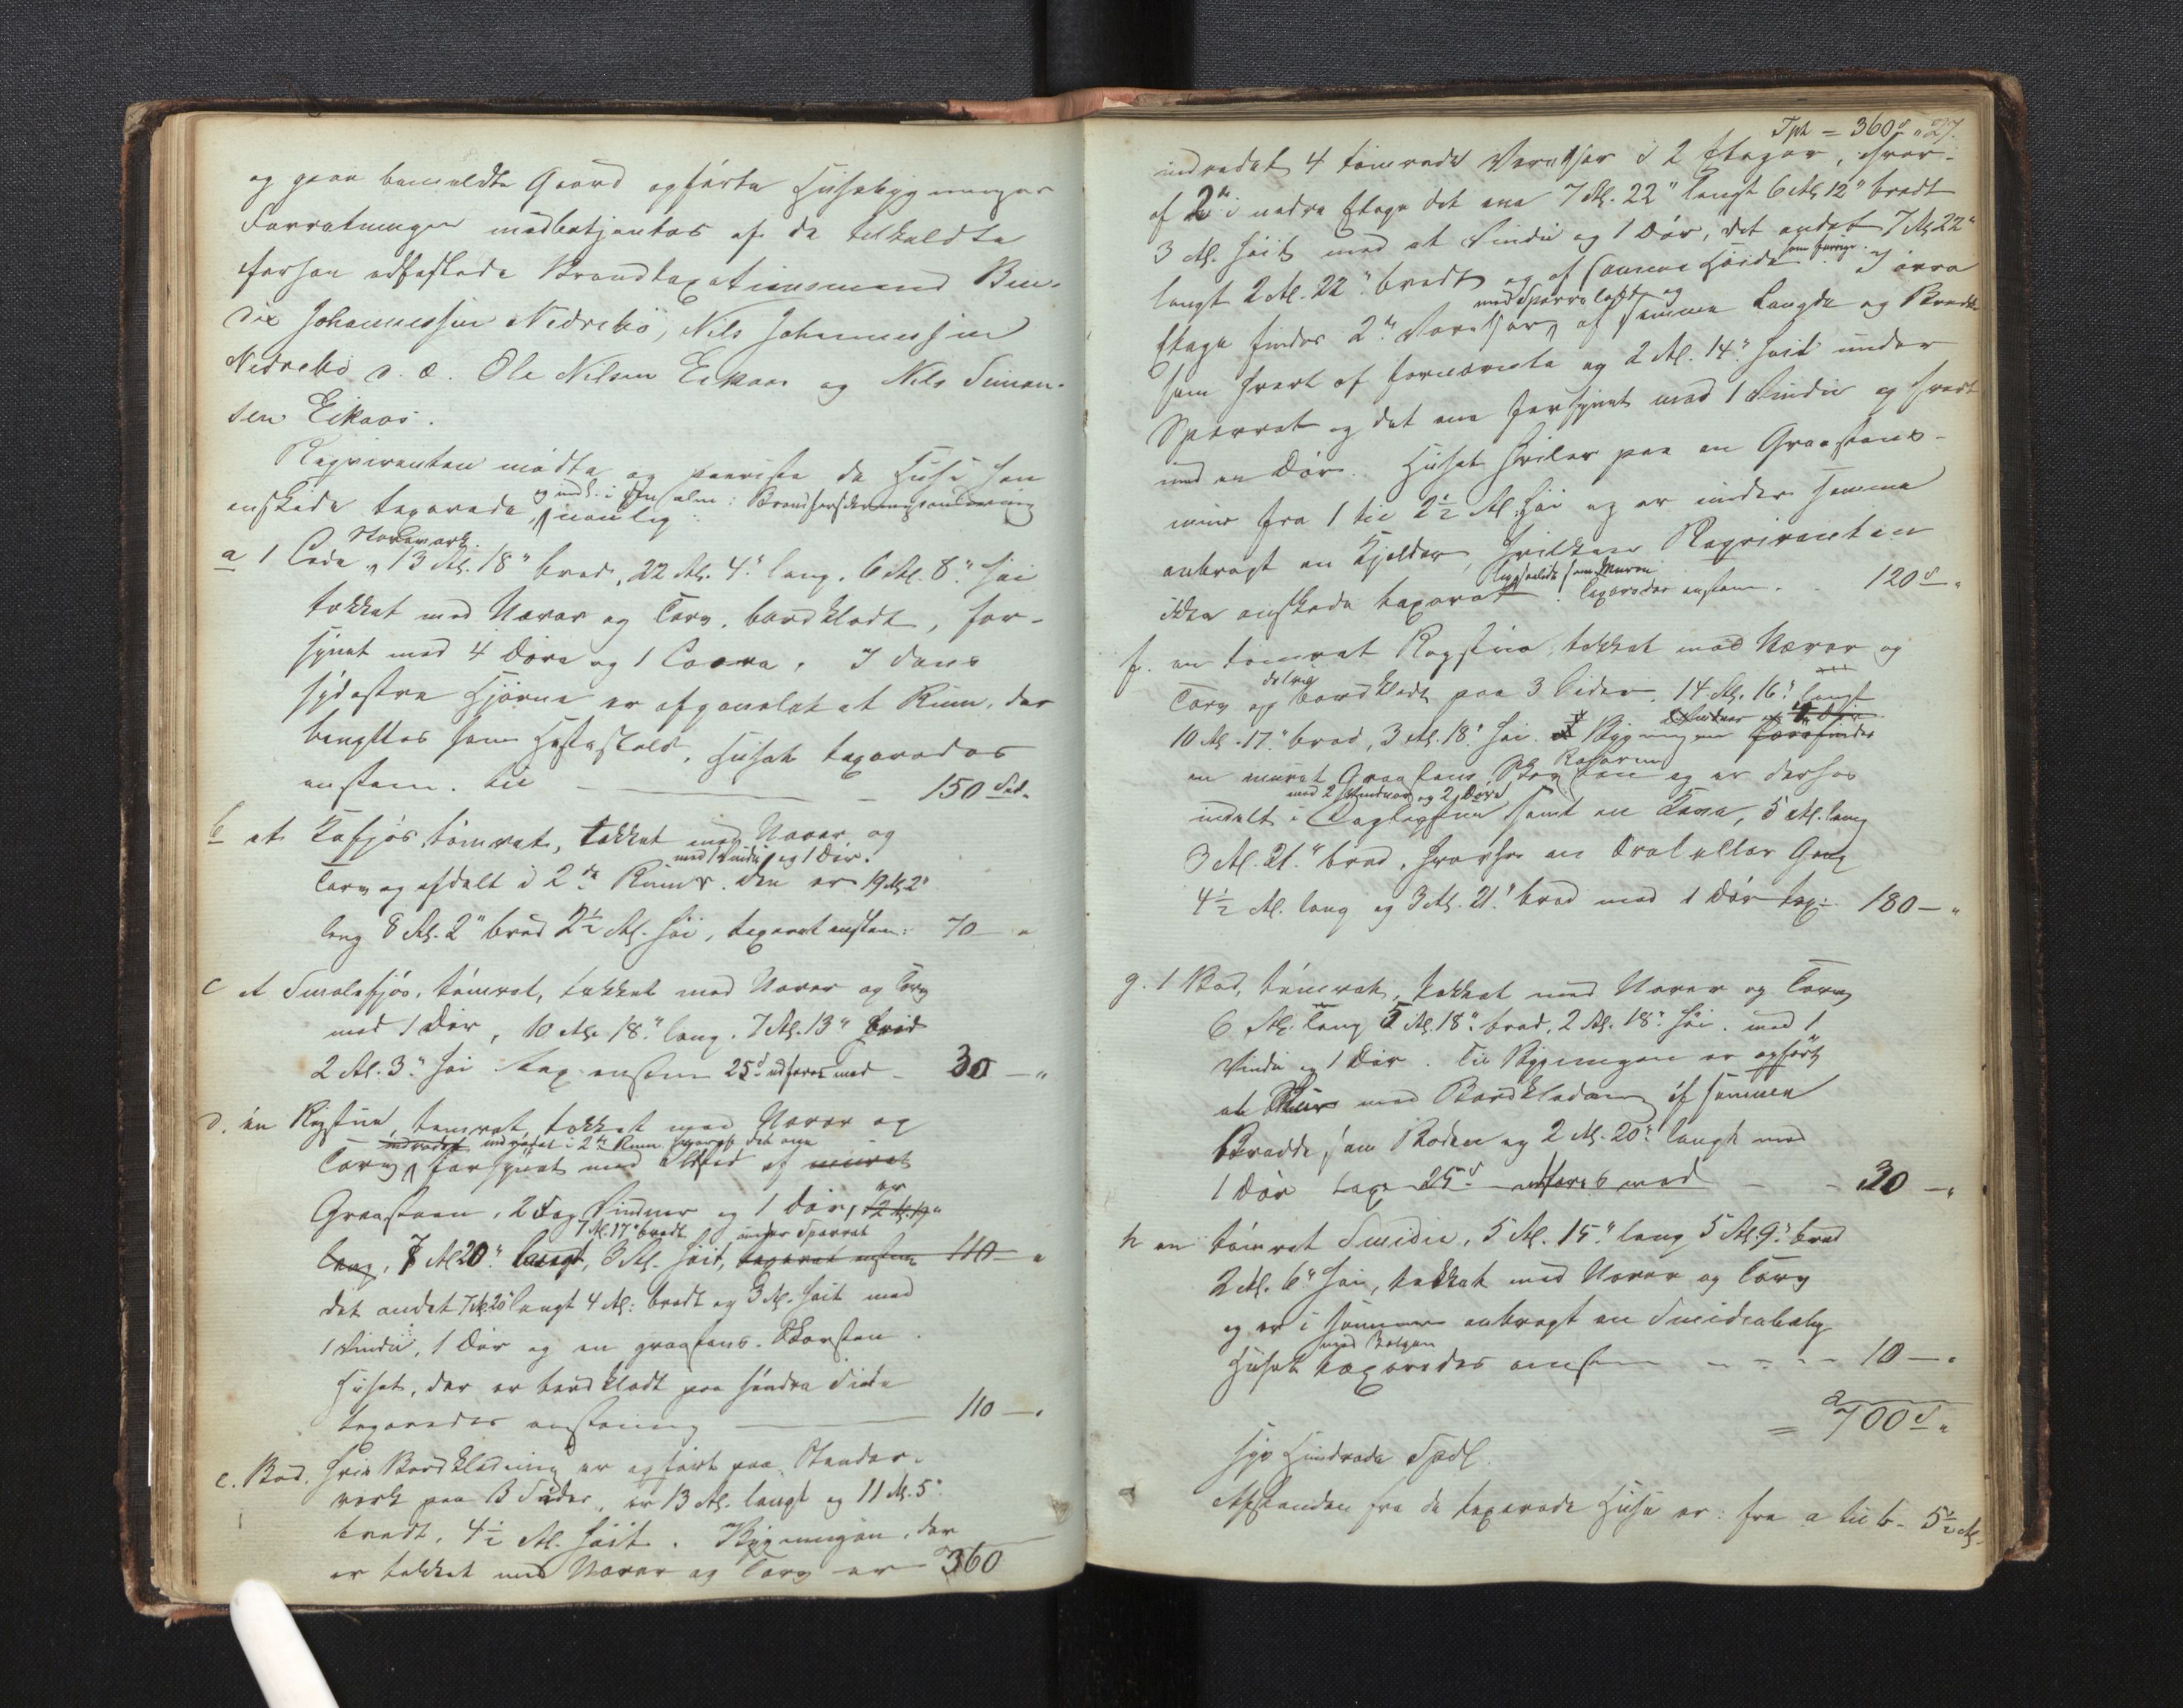 og paa bemeldte Gaard opførte Husebygninger
Forretningen medbetjentes af de tilkaldte
forhen edfæstede Brandtaxationsmænd Ben-
dix Johannessen Nedrebø, Nils Johannessen
Nedrebø d. æ. Ole Nilsen Eikaas og Nils Simon-
sen Eikaas.
Reqvirenten mødte og paaviste de Huse han
ønskede taxerede nemlig:
a 1 Lade, Stavværk. 13 Al. 18" bred, 22 Al. 4" lang, 6 Al. 8" høi
tækket med Næver og Torv, bordklædt, for-
synet med 4 Døre og 1 Laave. I dens
sydøstre Hjørne er afpanelet et Rum, der
benyttes som Hestestald. Huset taxeredes
enstem. til - 150 Spd.
b et Kofjøs, tømret, tækket med Næver og
Torv og afdelt i 2de Rum med 1 Vindu og 1 Dør. Den er 19 Al. 2"
lang 8 Al. 2" bred 2½ Al. høi, taxeret enstem: 70 - "
c et Smalefjøs, tømret, tækket med Næver og Torv
med 1 Dør, 10 Al. 18" lang, 7 Al. 13" bred
2 Al. 3" høi tax. enstem 25 d udføres med - 30 - "
d. en Røgstue, tømret, tækket med Næver og
Torv indredet i 2de Rum hvoraf det ene forsynet med Ildsted af muret
Graasteen, 2 Fag Vinduer og 1 Dør, er 2 Al. 19"
lang, 7 Al 20" langt, 7 Al. 17" bredt 3 Al. høit, under Sparret taxeret enstem 110 - "
det andet 7 Al. 20" langt 4 Al: bredt og 3 Al. høit med
1 Vindu, 1 Dør og en graastens Skorsten.
Huset, der er bordklædt paa søndre Side
taxeredes enstemmig - 110 - "
e. Bod, hvis Bordklædning er opført paa Stender-
verk paa 3 Sider, er 13 Al. langt og 11 Al. 5"
bredt, 4½ Al. høit. Bygningen, der
er tækket med Næver og Torv er 360
Tpt = 360 d " 27.
indredet 4 tømrede Værelser i 2 Etager, hvor-
af 2de i nedre Etage det ene 7 Al. 22" langt 6 Al. 12" bredt
3 Al. høit med et Vindu og 1 Dør, det andet 7 Al. 22"
langt 2 Al. 22" bredt og af samme Høide som forrige. I øvre
Etage findes 2de Værelser med Sperreloft og af samme Længde og Bredde
som hvert af fornævnte og 2 Al. 14" høit under
Sperret og det ene forsynet med 1 Vindu og hvert
med en Dør. Huset hviler paa en Graastens-
muur fra 1 til 2½ Al. høi og er under samme
anbragt en Kjelder, hvilken Reqvirenten
ikke ønskede taxeret ligesaalidt som Muren. Taxeredes enstem. 120 d "
f. en tømret Røgstue, tækket med Næver og
Torv og delvis bordklædt paa 3 Sider, 14 Al. 16" langt
10 Al. 17" bred, 3 Al. 18" høi. I Bygningen forefindes
en muret Graastens Røgovn og er derhos
indelt i Dagligstue med 2 Vinduer og 2 Døre samt en Kove, 5 Al. lang
3 Al. 21" bred, hvorhos en Sval eller Gang
4½ Al. lang og 3 Al. 21" bred med 1 Dør tax: 180 - "
g. 1 Bod, tømret, tækket med Næver og Torv
6 Al. lang 5 Al. 18" bred, 2 Al. 18" høi. med 1
Vindu og 1 Dør. Til Bygningen er opført
et Skur med Bordklædning af samme
Bredde, som Boden og 2 Al. 20" langt med
1 Dør taxe 25 d udføres med - - 30 - "
h en tømret Smidie, 5 Al. 15" lang 5 Al. 9" bred
2 Al. 6" høi, tækket med Næver og Torv
og er i samme anbragt en Smidiebælg
Huset med Bælgen taxeredes enstem - - - - 10 - "
= 700 d "
syv Hundrede Spdl.
Afstanden fra de taxerede Huse er: fra a til b - 5½ Al.